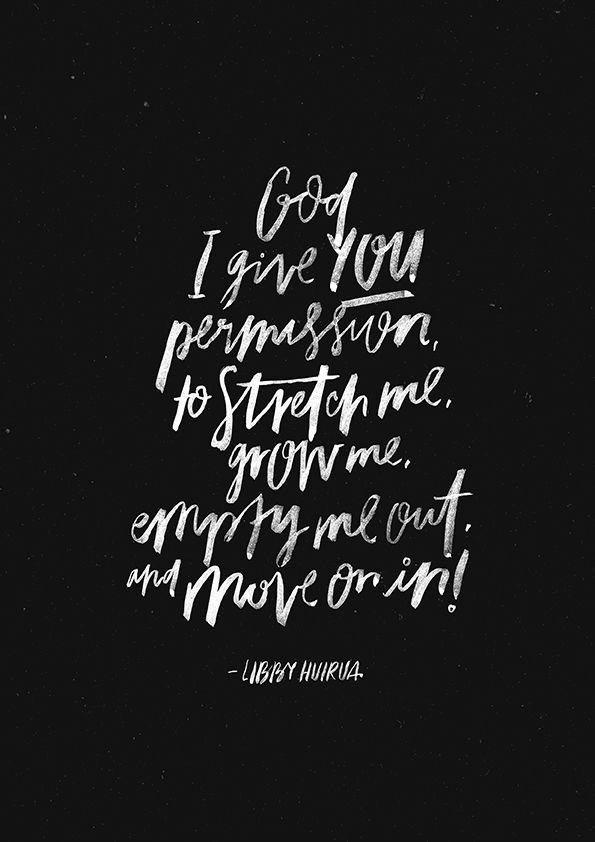 God
I give YOU
permission,
to stretch me,
grow me,
empty me out,
and move on in!
- LIBBY HUIRUA